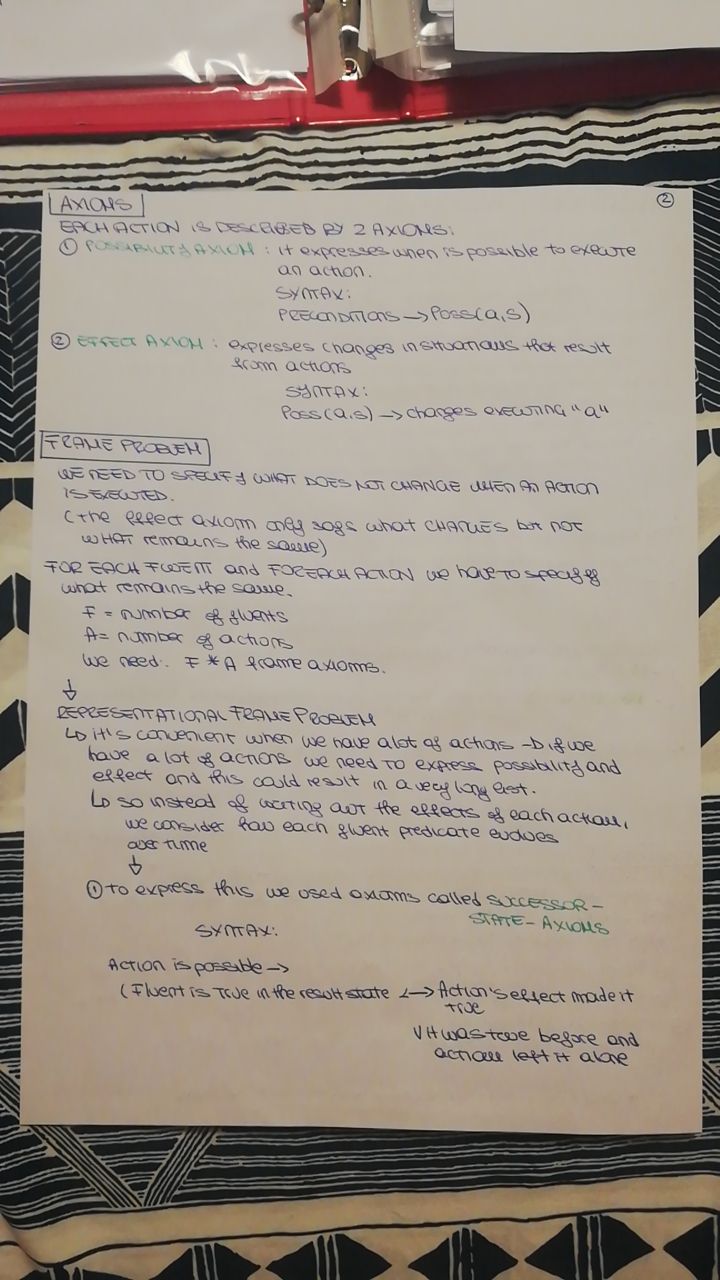 AXIOMS
2
EACH ACTION IS DESCRIBED BY 2 AXIOMS:
1 POSSIBILITY AXIOM : it expresses when is possible to execute
an action.
SYNTAX:
PRECONDITIONS → Poss(a,s)
2 EFFECT AXIOM : expresses changes in situations that result
from actions
SYNTAX:
Poss(a,s) → changes executing "a"
FRAME PROBLEM
WE NEED TO SPECIFY WHAT DOES NOT CHANGE WHEN AN ACTION
IS EXECUTED.
(the effect axiom only says what CHANGES but NOT
WHAT remains the same)
FOR EACH FLUENT and FOR EACH ACTION we have to specify
what remains the same.
F = number of fluents
A = number of actions
We need: F * A frame axioms.
↓
REPRESENTATIONAL FRAME PROBLEM
↳ it's convenient when we have a lot of actions → if we
have a lot of actions we need to express possibility and
effect and this could result in a very long list.
↳ so instead of writing out the effects of each action,
we consider how each fluent predicate evolves
over time
↓
1 to express this we used axioms called SUCCESSOR-
STATE-AXIOMS
SYNTAX:
Action is possible →
(Fluent is True in the result state ↔ Action's effect made it
true
V it was true before and
action left it alone